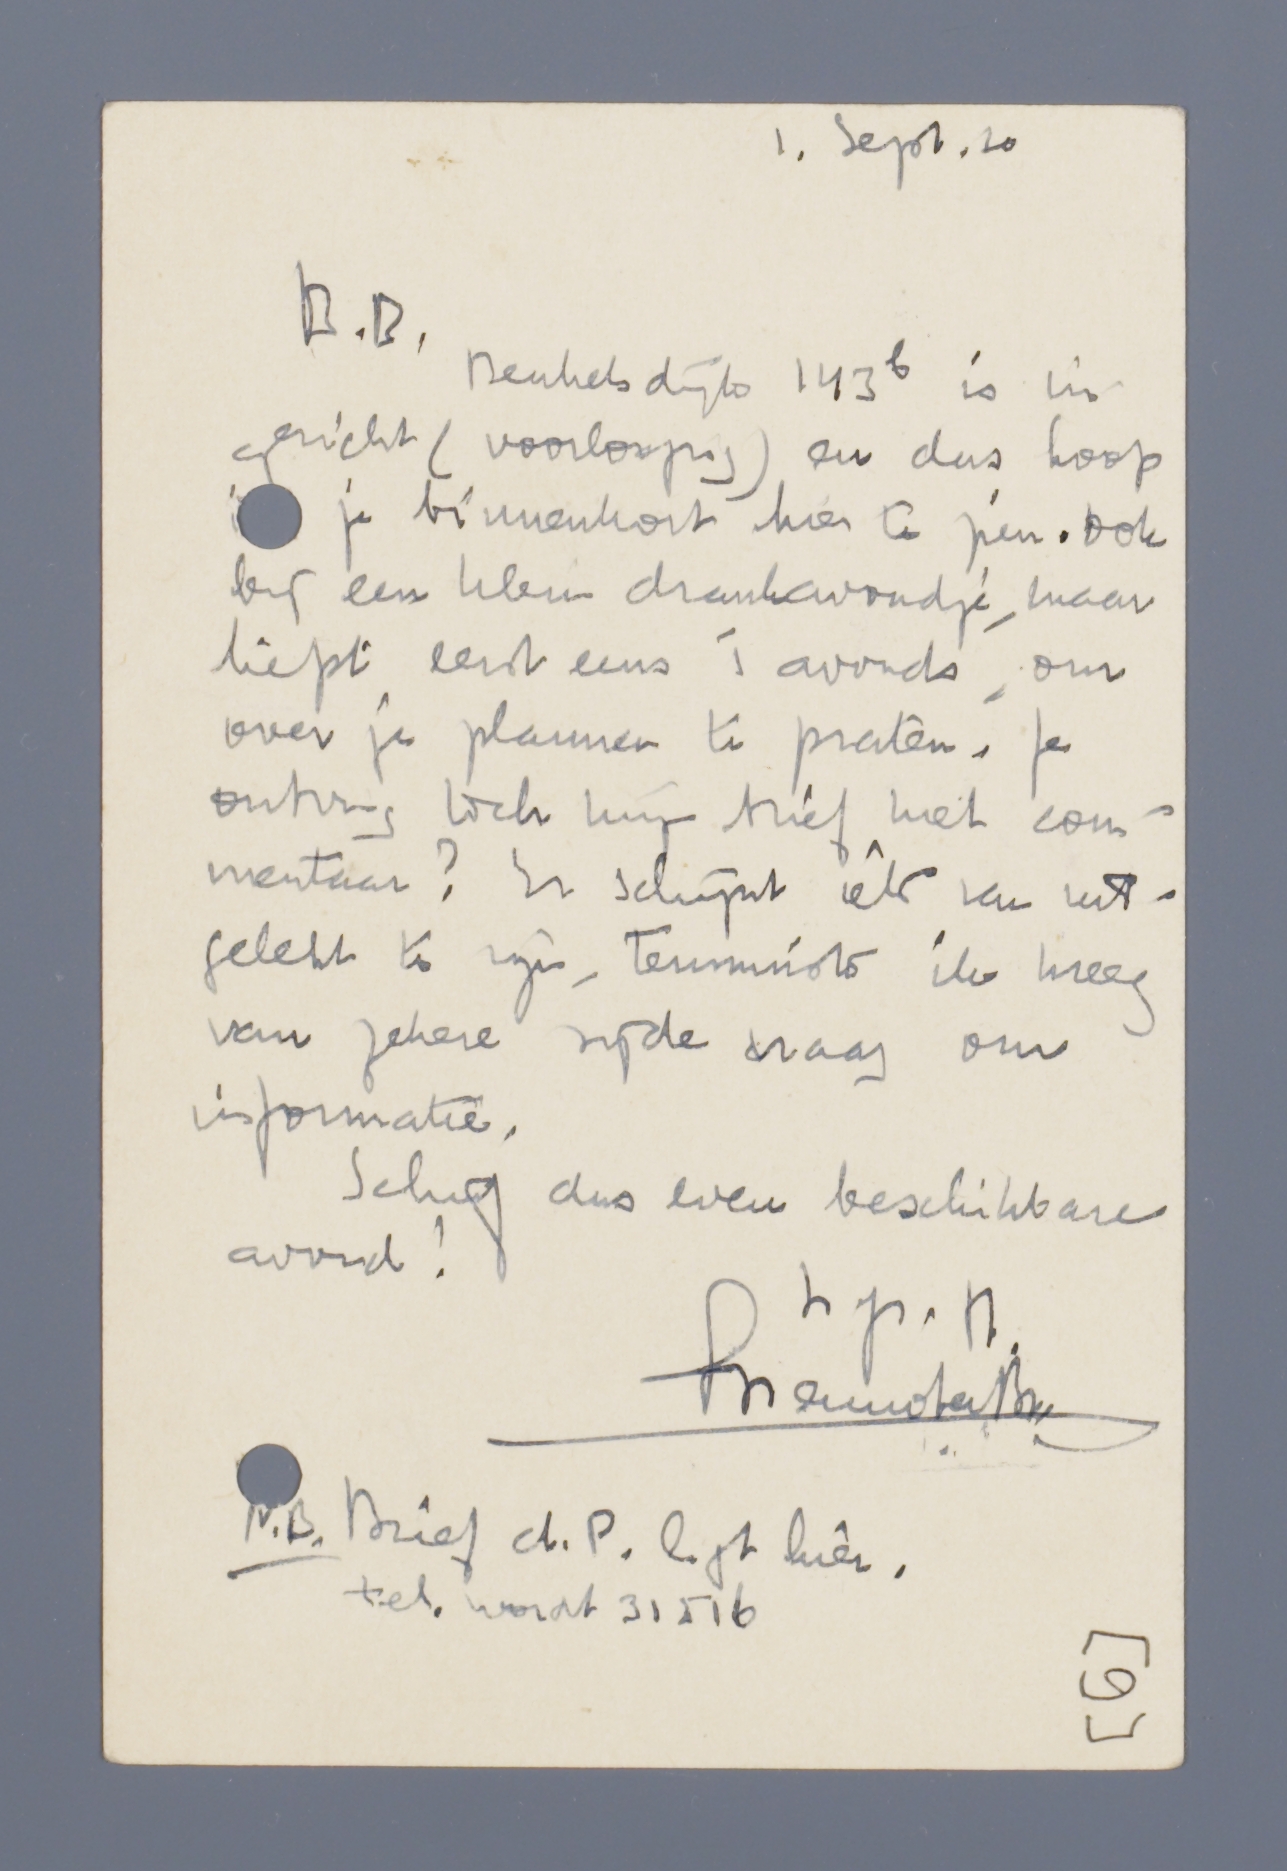 1. Sept. 20
B.B.,
Beukelsdijk 143b is in
gericht (voorloopig) en dus hoop
je binnenkort hier te zien. Ook
bij een klein drankavondje, maar
liefst eerst eens 's avonds, om
over je plannen te praten. Je
ontving toch mijn brief met com-
mentaar? Er schijnt iets van uit-
gelekt te zijn, tenminste ik kreeg
van zekere zijde vraag om
informatie.
Schrijf dus even beschikbare
avond!
h gr. M.
N.B. Brief d. P. ligt hier.
tel. wordt 31516
[6]